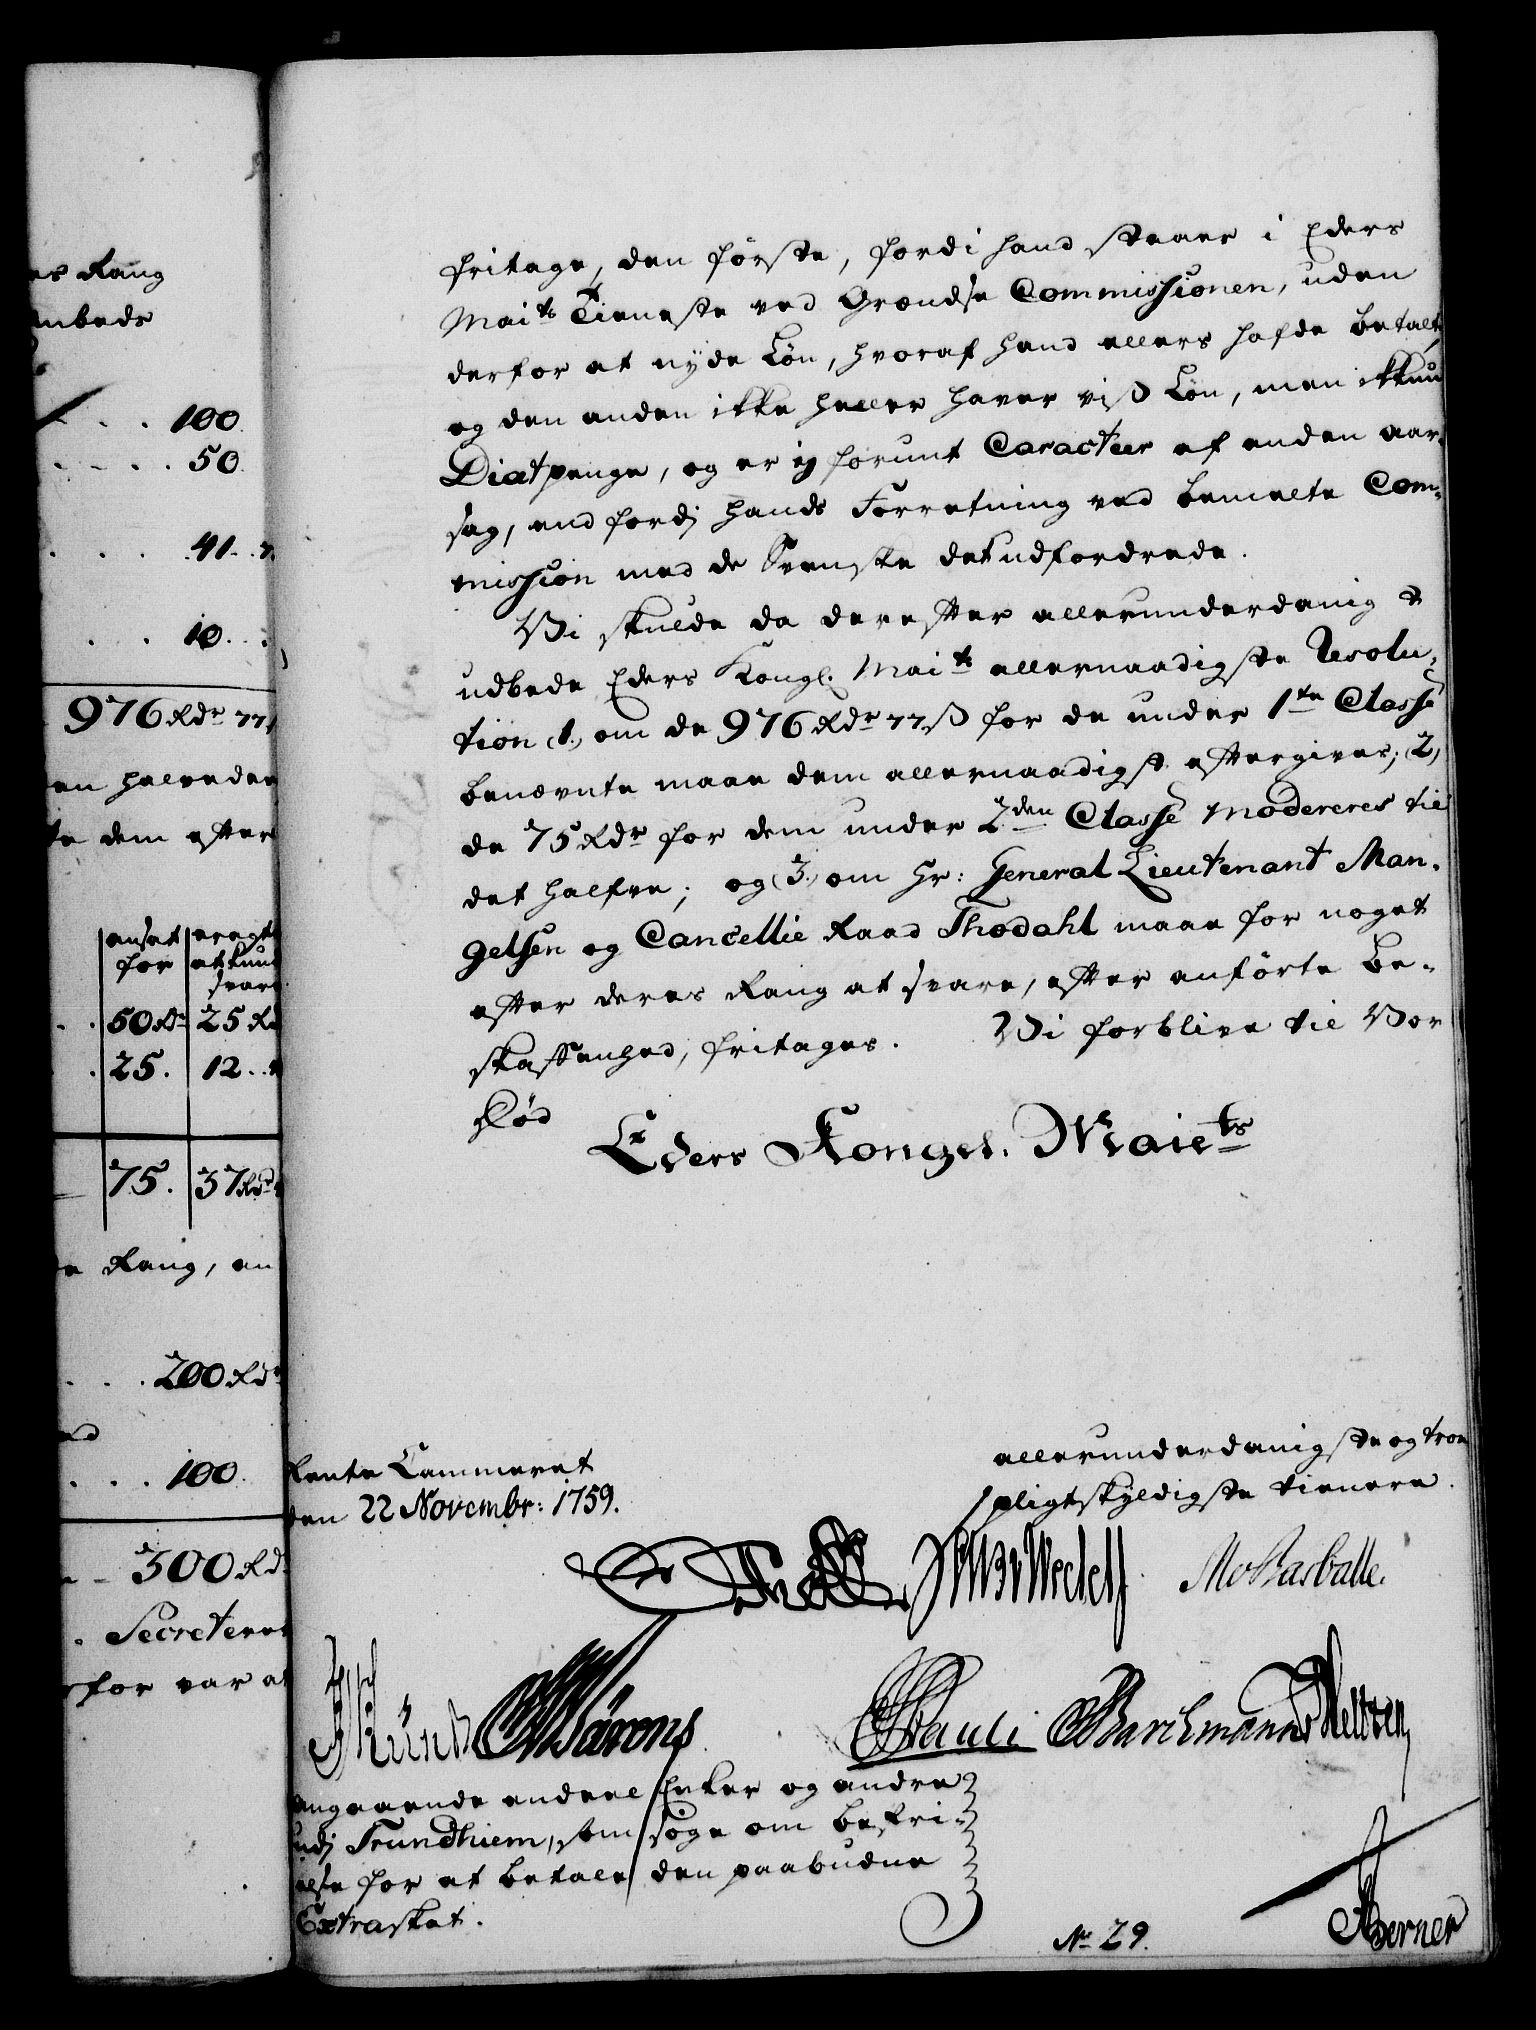 es Rang
enbeds
100.
50.
41..7.
10...
976 Rdr 77
en halveder
te dem efter
ansat
for
eragte
at kund
svare
50 Rdr 25 Rd
25. 12..
75. 37 Rdr
e Rang, en
200 Rdr
100.
300 Rd
Secreterer
for var at
fritage, den første, fordi hand staaer i Eders
Maits Tieneste ved Grændse Commissionen, uden
derfor at nyde Løn, hvoraf hand ellers hafde betalt,
og den anden ikke heller haver viß Løn, men ikkun
Diætpenge, og er ej forunt Caracteer af anden aar-
sag, end fordj hands Forretning ved bemelte Com-
mission med de Svenske det udfordrede.
Vi skulde da derefter allerunderdanigst
udbede Eders Kongl. Maits allernaadigste Resolu-
tion (1.) om de 976 Rdr 77 ß for de under 1te Classe
benævnte maae dem allernaadigst eftergives; (2)
de 75 Rdr for dem under 2den Classe modereres til
det halfve; og (3.) om Hr: General Lieutenant Man-
gelsen og Cancellie Raad Thodahl maae for noget
efter deres Rang at svare, efter anførte be-
skaffenhed, fritages. Vi forblive til Vor
Død
Eders Kongel. Maiets
Rente Cammeret
den 22 Novembr: 1759.
allerunderdanigste og troe
pligtskyldigste tienere.
Wedell
Barballe.
Pauli
Barchmann
Heltzen
angaaende endeel Enker og andre
udj Trundhiem, som søge om befri-
else for at betale den paabudne
Extraskat.
No 29.
Berner